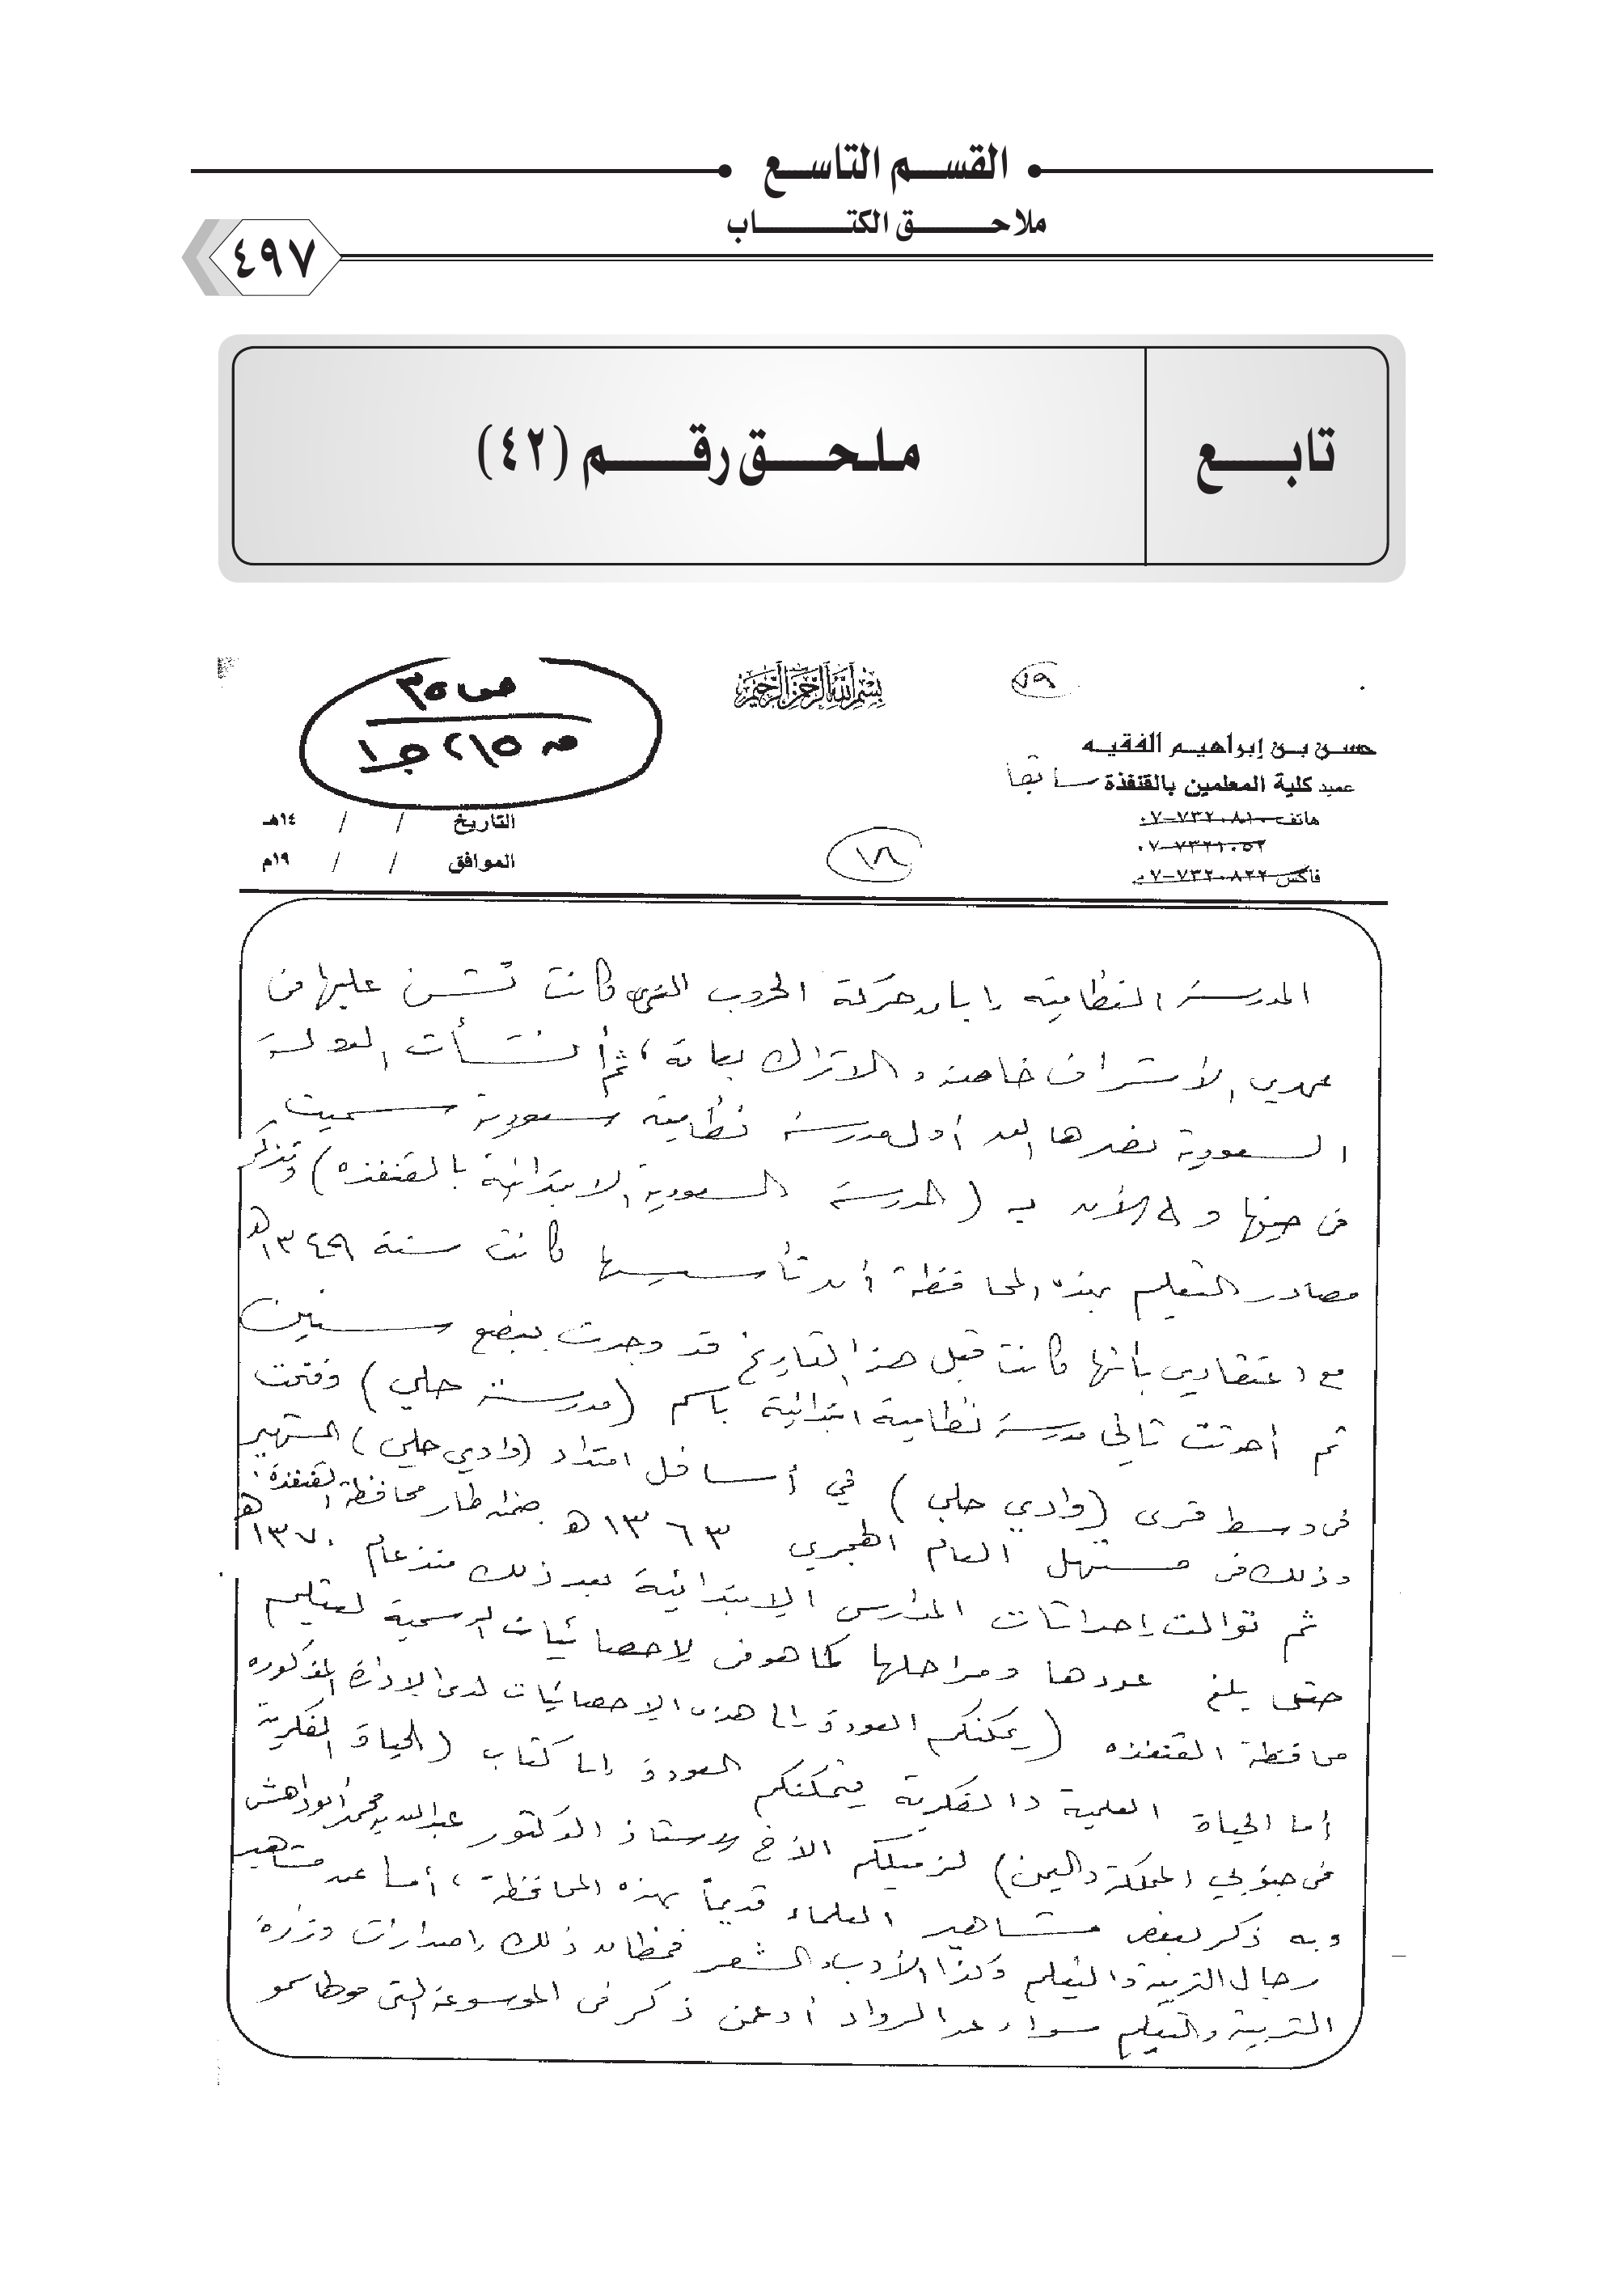 القسم التاسع
ملاحق الكتاب
٤٩٧
تابع
ملحق رقم (٤٢)
ص ٣٥
ص ٢١٥ ج١
بسم الله الرحمن الرحيم
١٩
حسن بن إبراهيم الفقيه
عميد كلية المعلمين بالقنفذة سابقاً
هاتف ٧٣٢٠٨١٠-٠٧
٧٣٢١٠٥٢-٠٧
فاكس ٧٣٢٠٨٢٢-٠٧
التاريخ / / ١٤هـ
الموافق / / ١٩م
١٨
المدرسة النظامية إبان حركة الحروب التي كانت تشن عليها من
عهدي الأشراف خاصة والأتراك بعامة، ثم أنشأت الدولة
السعودية بعدها أول مدرسة نظامية سعودية سميت
في حينها و الآن بـ (المدرسة السعودية الابتدائية بالقنفذه) وتذكر
مصادر التعليم بهذه المحافظة أن تأسيسها كانت سنة ١٣٤٩هـ
مع اعتقادي بأنها كانت قبل هذا التاريخ قد وجدت ببضع سنين
ثم أحدثت ثاني مدرسة نظامية ابتدائية باسم (مدرسة حلي) وفتحت
في وسط قرى (وادي حلي) في أسافل امتداد (وادي حلي) الشهير
وذلك في مستهل العام الهجري ١٣٦٣هـ ضمن إطار محافظة القنفذة.
ثم توالت إحداثات المدارس الابتدائية بعد ذلك منذ عام ١٣٧٠هـ
حتى بلغ عددها ومراحلها كما هو في الإحصائيات الرسمية لتعليم
محافظة القنفذه (يمكنكم العودة إلى هذه الإحصائيات لدى الإدارة المذكوره
أما الحياة العلمية والفكرية فيمكنكم العودة إلى كتاب (الحياة الفكرية
في جنوبي المملكة واليمن) لزميلكم الأخ الأستاذ الدكتور عبدالله بن محمد أبو داهش
وبه ذكر لبعض مشاهير العلماء قديماً بهذه المحافظة، أما عن مشاهير
رجال التربية والتعليم وكذا الأدب والشعر فمظان ذلك إصدارات وزارة
التربية والتعليم سواء عن الرواد أو عمن ذكر في الموسوعة التي